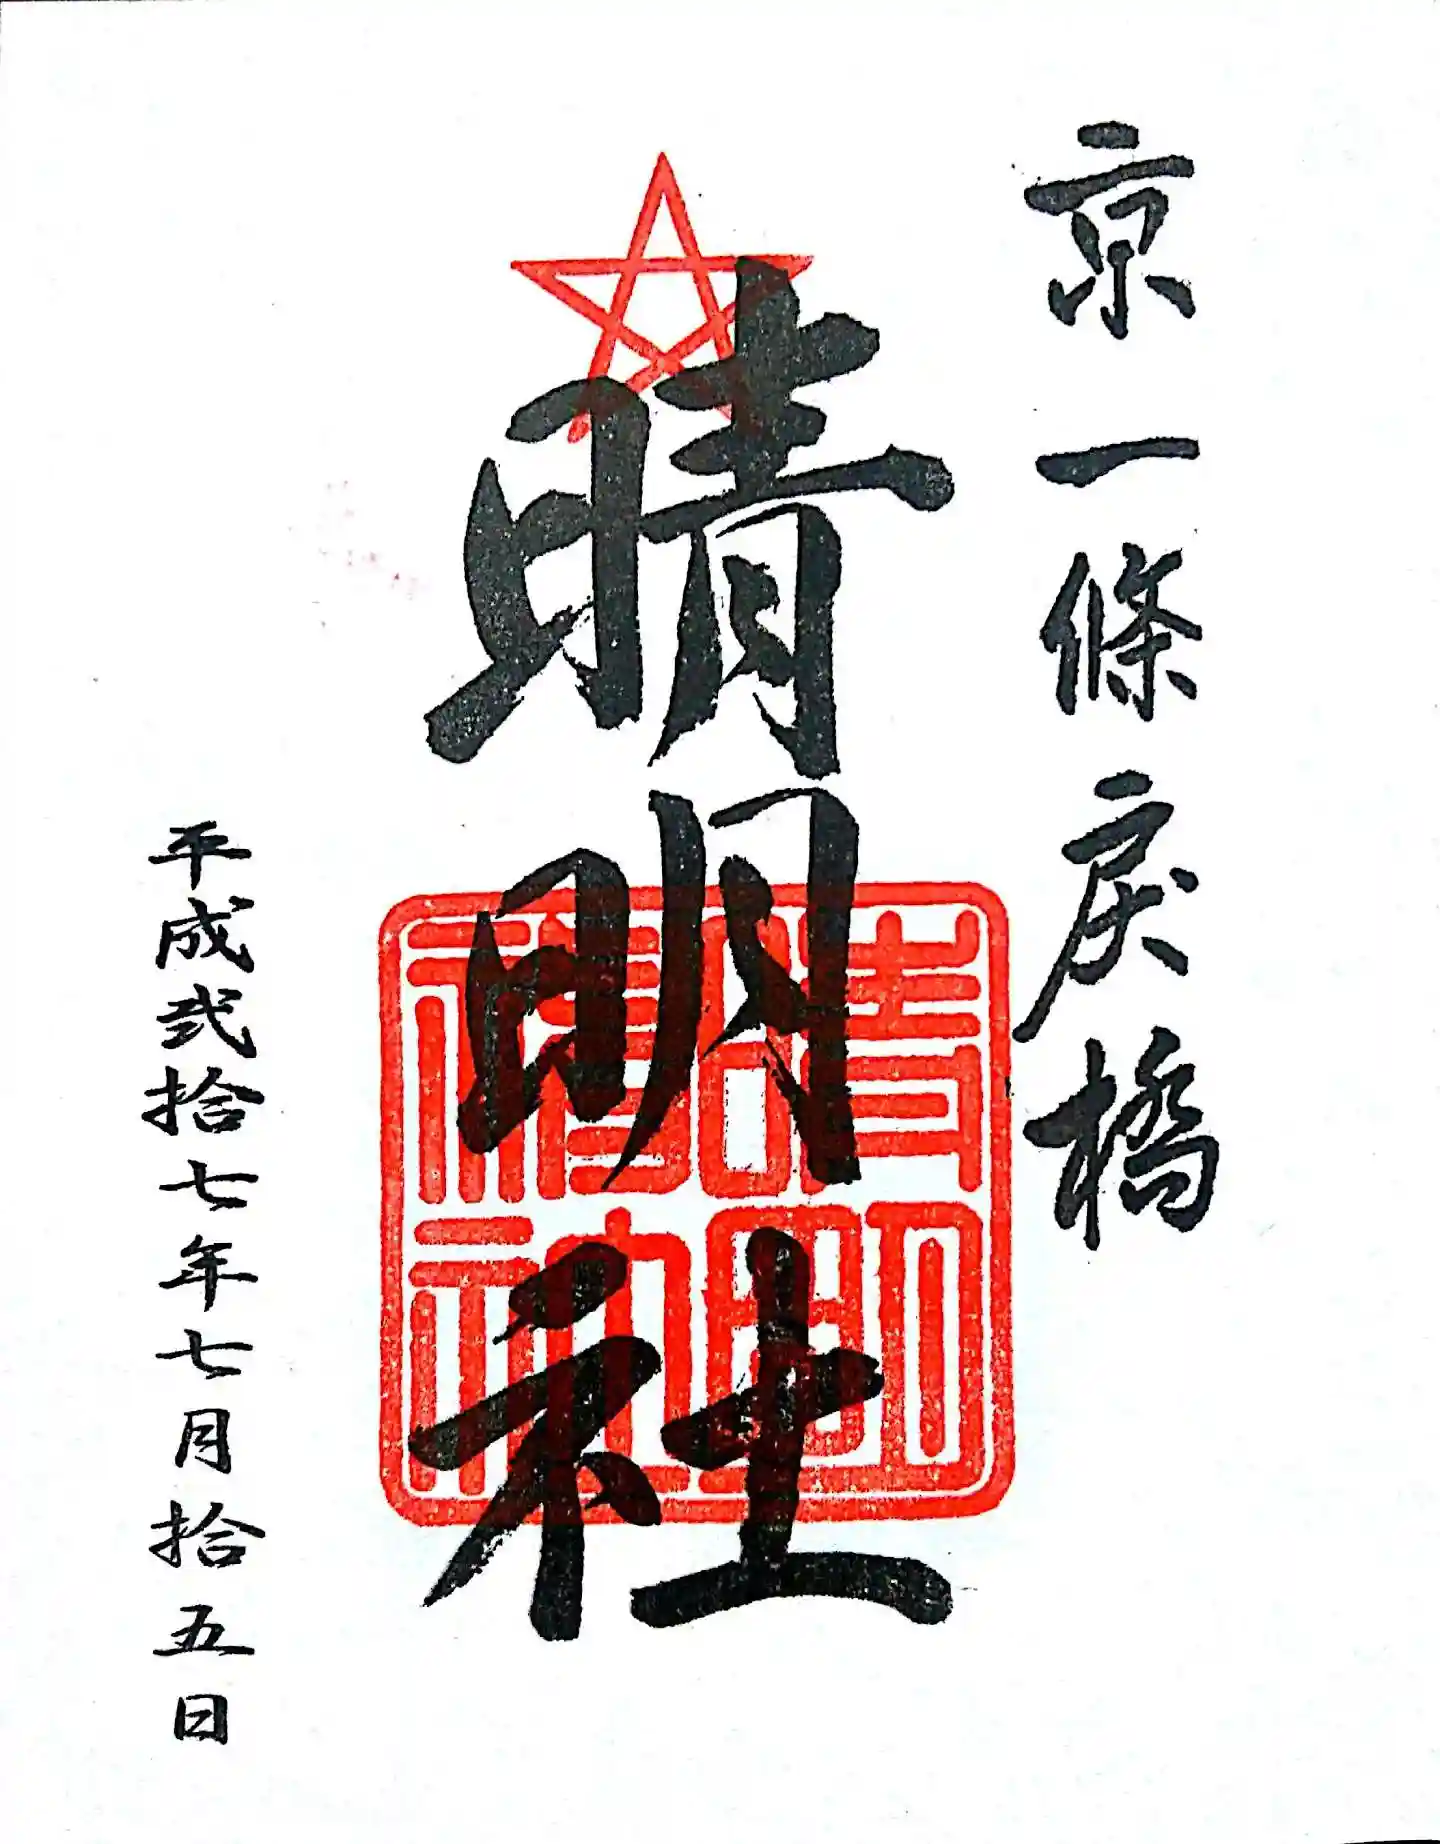 京一條戻橋
晴明社
晴明神社
平成弐拾七年七月拾五日